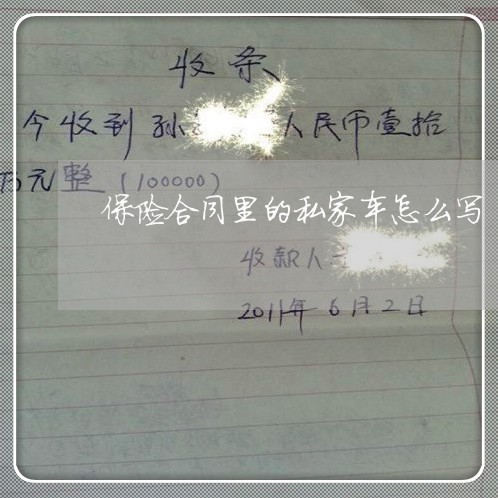 收条
今收到孙 人民币壹拾
万元整（100000）
保险合同里的私家车怎么写
收款人
2011年6月2日